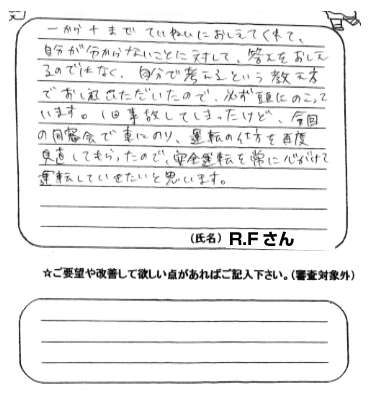 一から十までていねいにおしえてくれて、
自分が分からないことに対して、答えをおしえ
るのではなく、自分で考えるという教え方
でおしえいただいたので、必ず頭にのこって
います。1回事故してしまったけど、今回
の同窓会で車にのり、運転の仕方を再度
見直してもらったので、安全運転を常に心がけて
運転していきたいと思います。
(氏名) R.Fさん
☆ご要望や改善して欲しい点があればご記入下さい。(審査対象外)